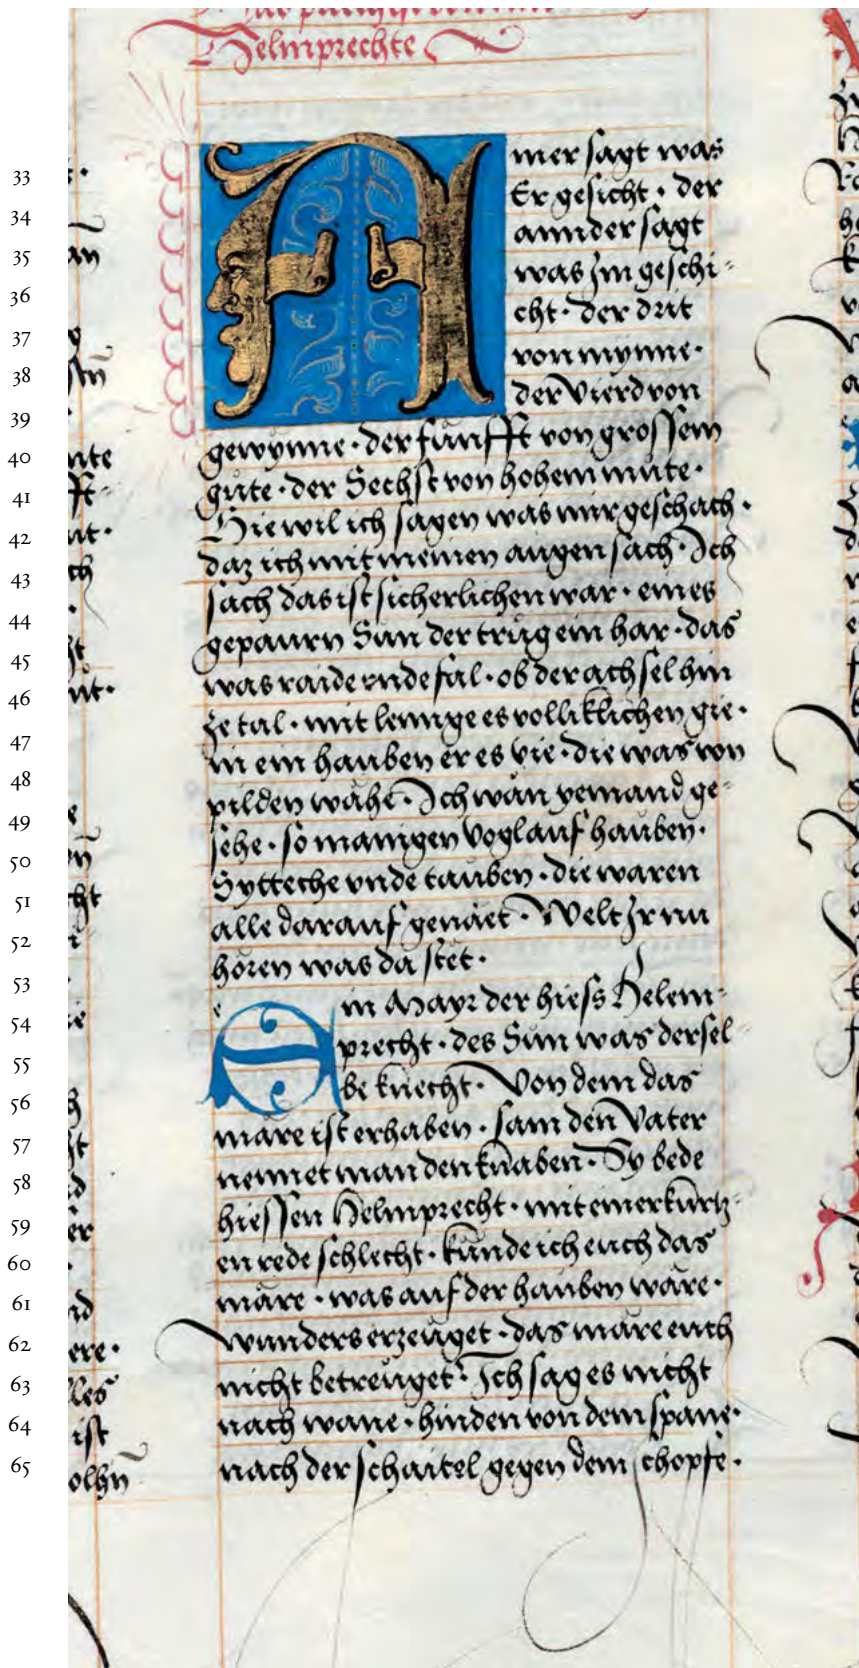 Helmprechte
Ainer sagt was
Er gesicht · der
annder sagt
was Im geschi-
cht · der drit
von mynne ·
der Vierd von
gewynne · der fünfft von grossem
gůte · der Sechst von hohem můte ·
Hie wil ich sagen was mir geschach ·
daz ich mit meinen augen sach · Ich
sach das ist sicherlichen war · eines
gepaurn Sun der trůg ein har · das
was raide vnde fal · ob der achsel hin
ze tal · mit lennge es volliklichen gie ·
in ein hauben er es vie · die was von
pilden wähe · Ich wän yemand ge-
sehe · so manigen Vogl auf hauben ·
Sytteche vnde tauben · die waren
alle darauf genäet · Welt Ir nu
hören was da stet ·
e in Mayr der hiess Helem-
precht · des Sun was dersel-
be knecht · Von dem das
märe ist erhaben · sam den Vater
nennet man den knaben · Sy bede
hiessen Helmprecht · mit einer kurtz-
en rede schlecht · künde ich euch das
märe · was auf der hauben wäre ·
wunders erzeuget · das märe euch
nicht betreuget · Ich sag es nicht
nach wane · hinden von dem spane ·
nach der schaitel gegen dem schopfe ·
33
34
35
36
37
38
39
40
41
42
43
44
45
46
47
48
49
50
51
52
53
54
55
56
57
58
59
60
61
62
63
64
65